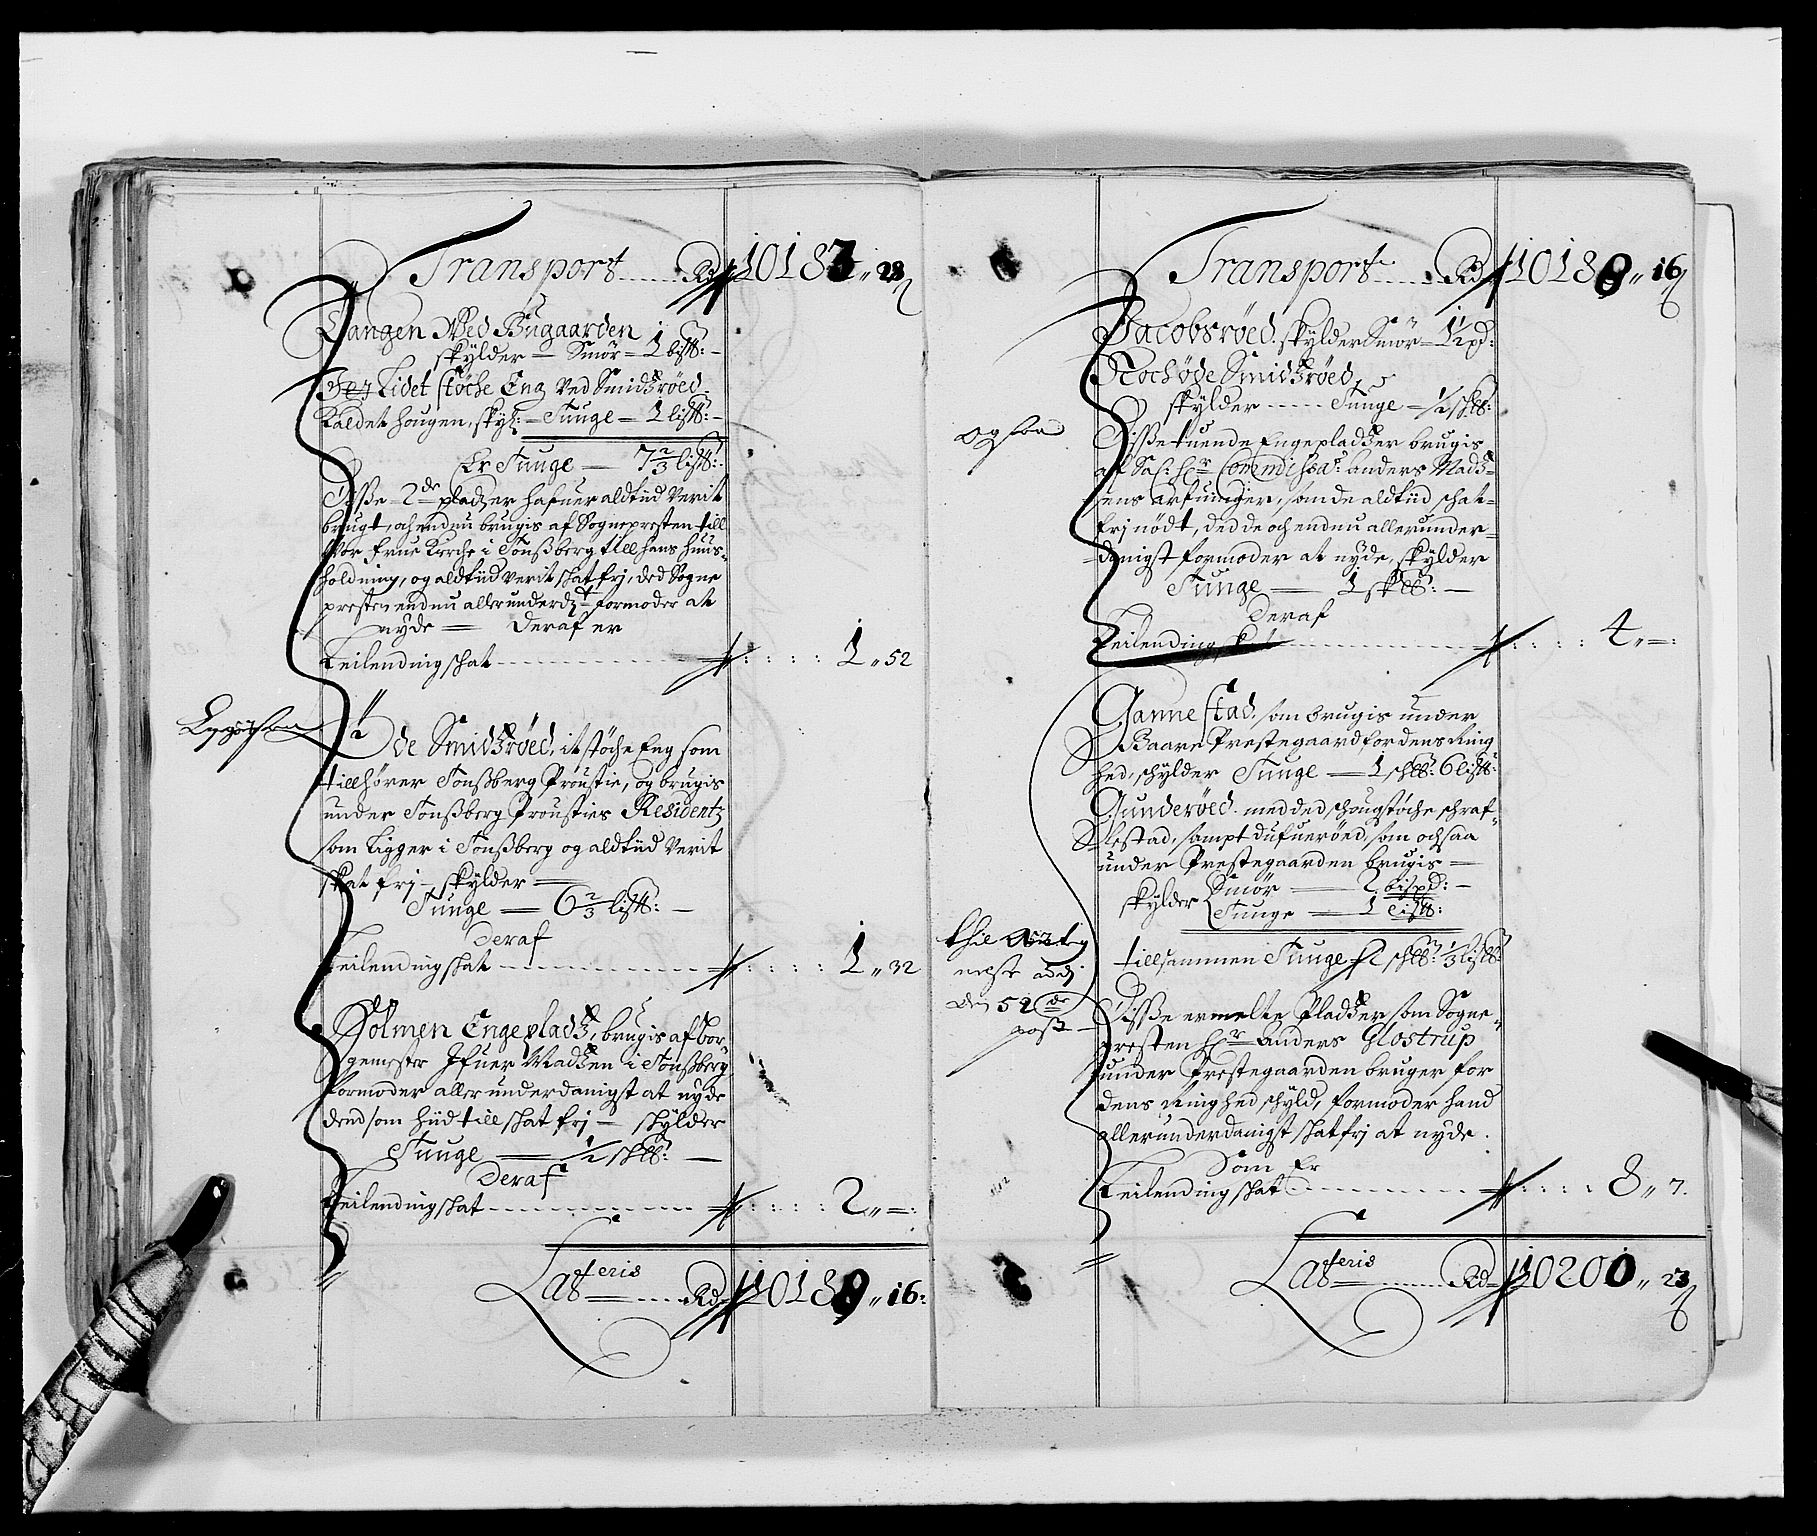 Transport ...... Rd 10183 „ 28
Vangen Ved Bugaarden
skylder — Smör — 1 bis℔: –
Jt Lidet støche Eng Ved Smidzrøed
Kaldet Hougen, skyl: – Tunge – 1 lis℔: –
Er Tunge — 7 2/3 lis℔:
Disse 2de pladzer hafuer altiid Verit
brugt, och endnu brugis af Sognepresten till
Vor Frue Kirche i Tonßberg till hans huus-
holdning, og altiid verit skat frj, ded Sogne
presten endnu allerunderd:st formoder at
nyde — Deraf er
Leilendingskat ---------- 1 „ 52
Øde Smidzrøed, it støche Eng som
tillhører Tonßberg Proustie, og brugis
under Tonßberg Prousties Residentz
som ligger i Tonßberg og altiid Verit
skat frj – skylder —
Tunge — 6 2/3 lis℔: –
Deraf
Leilendingskat ---------- 1 „ 32
Holmen Engepladz, brugis af Bor-
gemester Ifuer Madzen i Tonßberg
formoder allerunderdanigst at nyde
dend som hiid till skat frj – skylder
Tunge — 1/2 sk℔: —
Deraf
Leilendingskat ---------- 2 „ =:
Lateris ...... Rd 10189 „ 16:
Transport ...... Rd 10189 „ 16
Jacobsrøed. skylder Smör – 1 1/2 pd:
Noch Øde Smidzrøed,
skylder ----- Tunge – 1/2 sk℔:
ogsaa
Disse tuende Engepladzer brugis
af Sal: Hr Anders Madz-
ens arfuinger, som de altiid skat-
frj nödt, ded de och endnu allerunder-
danigst formoder at nyde, skylder
Tunge — 1 sk℔: —
Deraf
Leilendingskat ---------- 4 „ =:
Gannestad, som brugis under
Baare Prestegaard for dens Ring
hed, skylder Tunge — 1 sk℔: 6 lis℔:
Gunderøed med ded skougstøche schraf-
lestad, sampt dufuerøed, som ochsaa
under Prestegaarden brugis —
skylder Smör — 2 bispd: –
Tunge — 1 lis℔:
tillsammen Tunge – 2 sk℔: 1/3 lis℔:
den 52 de
post –
Disse ermelte Pladzer som Sogne-
presten Hr Anders Glostrup
under Prestegaarden bruger for
dens Ringhed skyld, formoder hand
allerunderdanigst skatfrj at nyde.
Som Er
Leilendingskat ---------- 8 „ 7.
Lateris ...... Rd 10201 „ 23